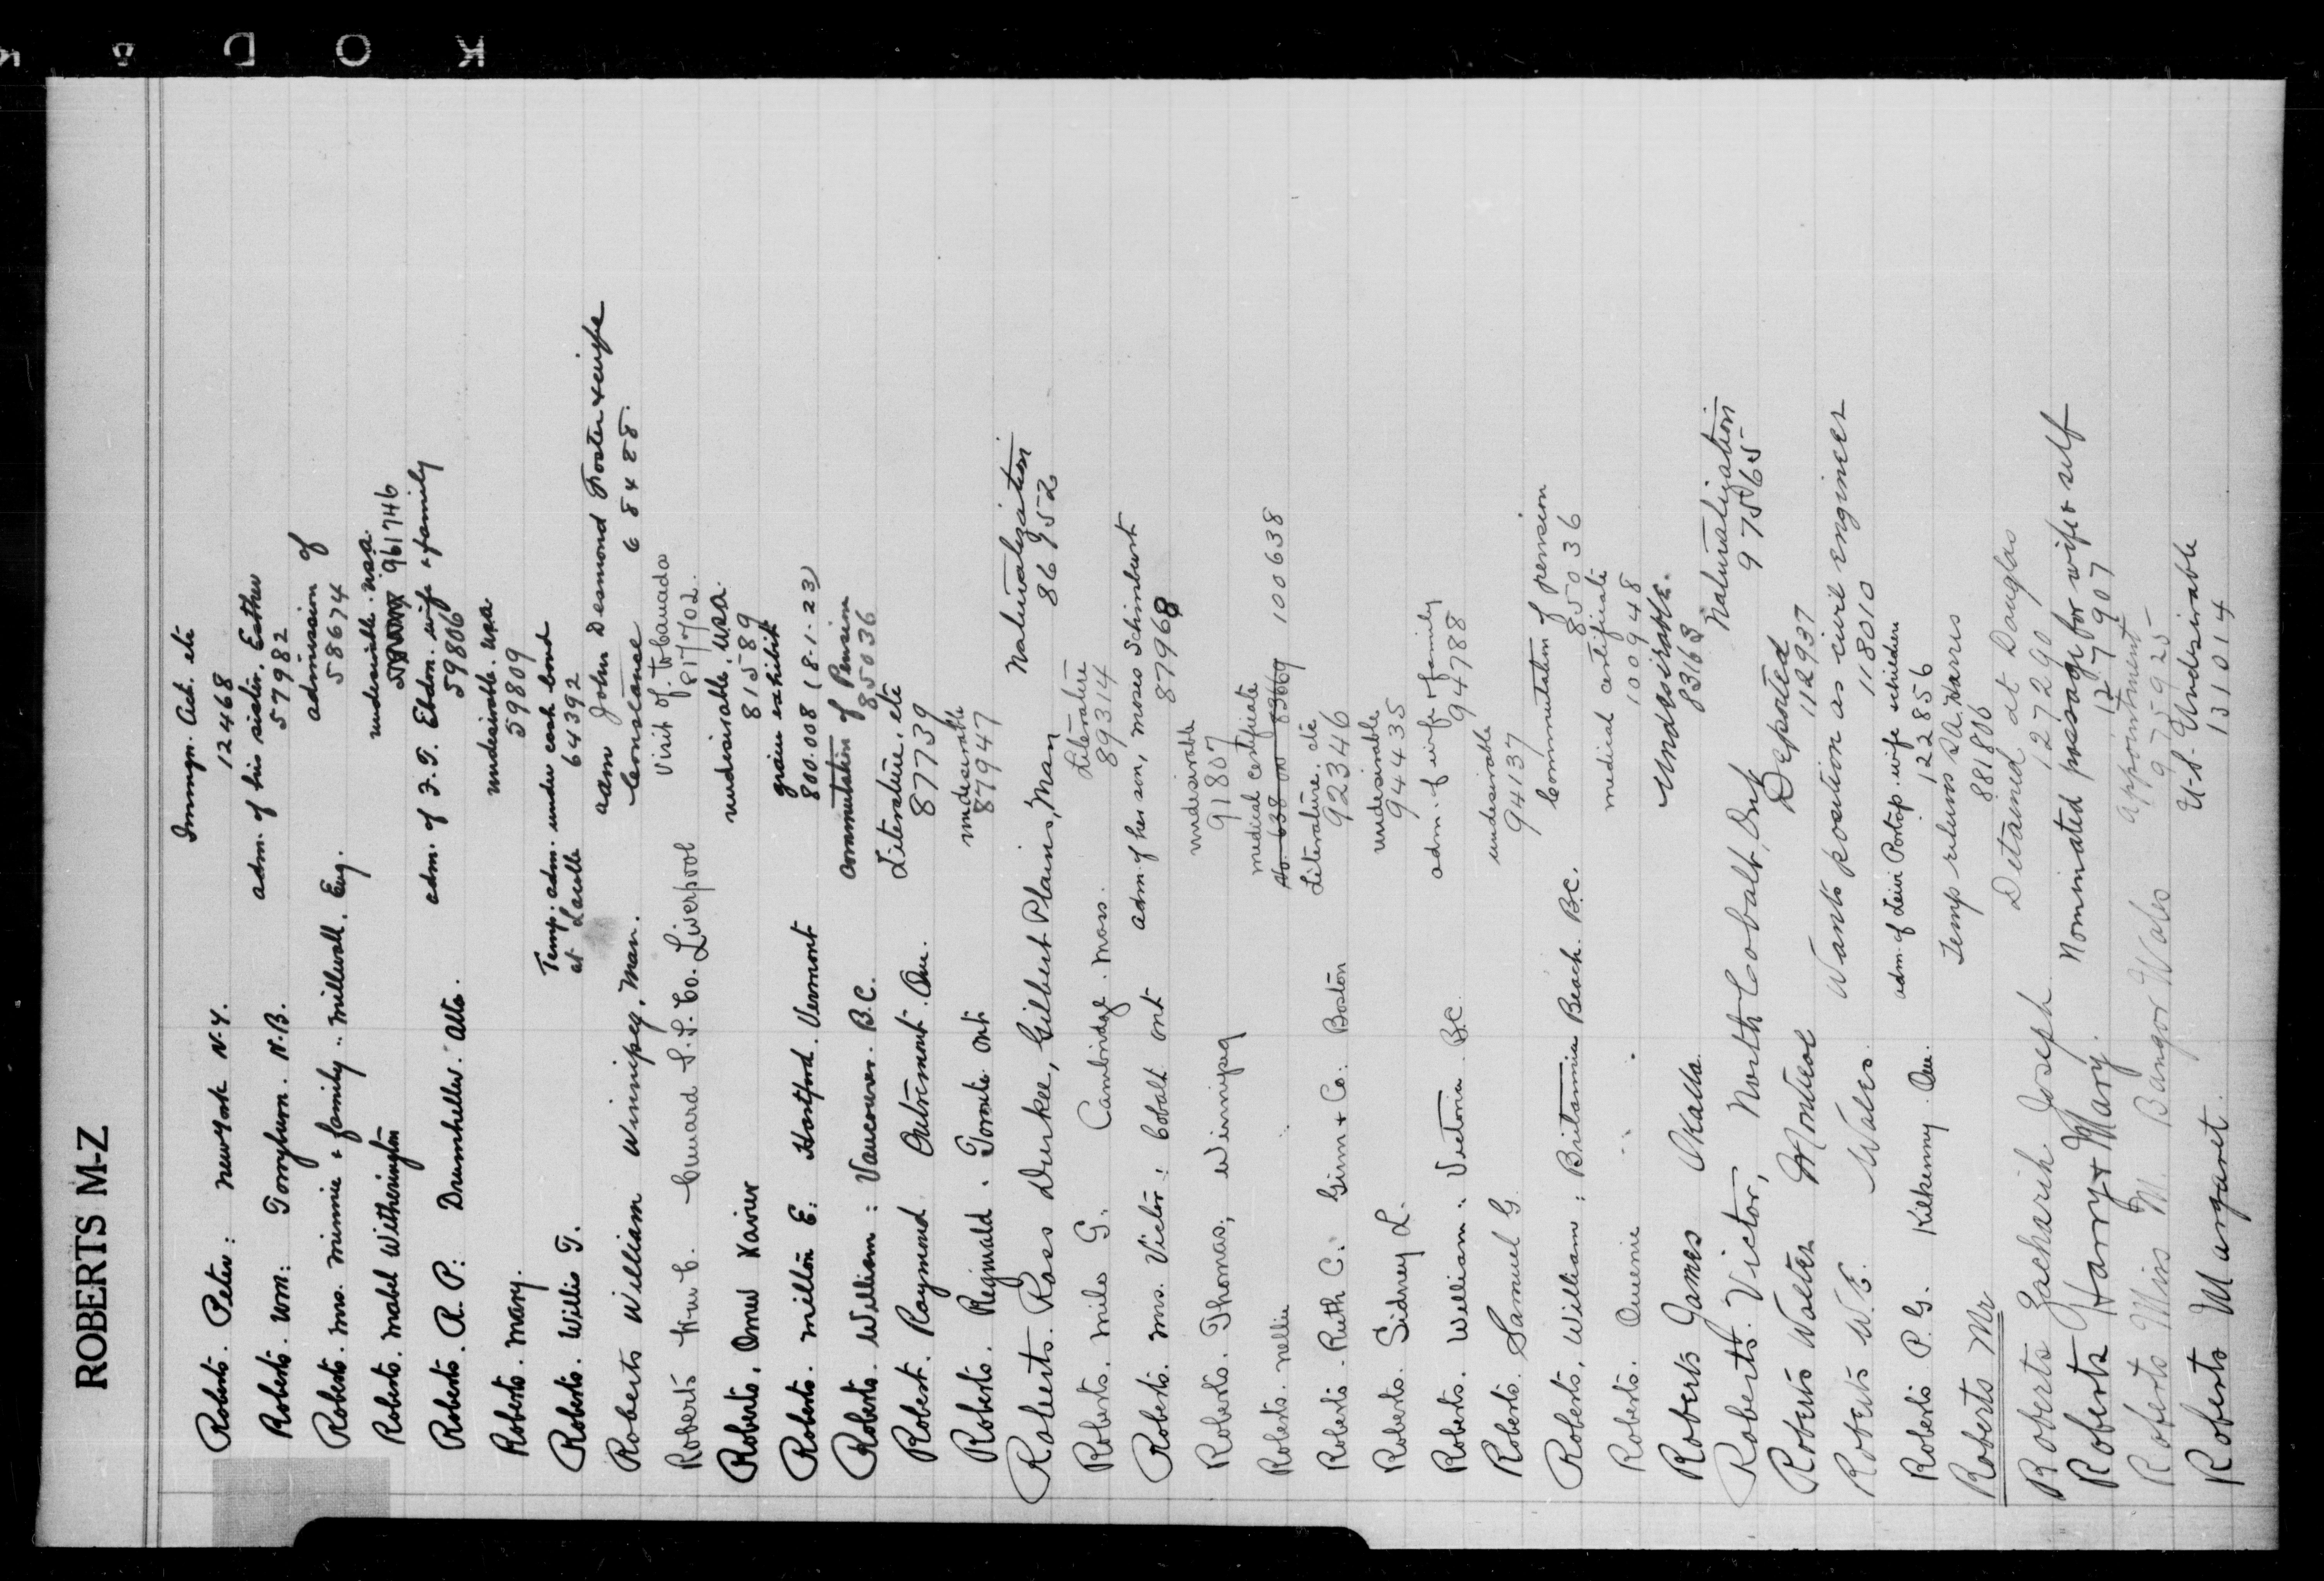 KODA
ROBERTS M-Z
Roberts. Peter: New York N.Y. Immgn. Act. etc
12468
Roberts. Wm: Torryburn. N.B. adm. of his sister. Esther
57982
Roberts. Mrs. Minnie & family: Millwall. Eng. admission of
58674
Roberts. Mabel Witherington undesirable. USA.
961746
Roberts. R. P: Drumheller. Alta. adm. of F. T. Ebdon. wife & family
59806
Roberts. Mary. undesirable. USA
59809
Roberts. Willis T. Temp. adm. under cash bond
at Lacolle 64392
Roberts William Winnipeg, Man. adm John Desmond Foster & wife
Constance 68488.
Roberts Cunard S.S. Co. Liverpool Visit of. to Canada
817702.
Roberts. Omer Xavier undesirable. USA.
81589
Roberts. Milton E: Hartford. Vermont grain exhibit
800.008 (8-1-23)
Roberts. William: Vancouver. B.C. commutation of Pension
85036
Robert. Raymond. Outremont. Que. Literature. etc
87739
Roberts. Reginald. Toronto Ont undesirable
87947
Roberts. Ross Durkee, Gilbert Plains, Man Naturalization
86952
Roberts. Milo G. Cambridge. Mass. Literature
89314
Roberts. Mrs. Victor: Cobalt Ont adm. of her son, Moses Schimburst
87968
Roberts. Thomas, Winnipeg undesirable
91807
Roberts. Nellie " medical certificate
No. 638 on 83669 100638
Roberts. Ruth C. Ginn & Co: Boston Literature. etc
92346
Roberts. Sidney L. undesirable
94435
Roberts. William: Victoria BC. adm. of wife & family
94788
Roberts. Samuel G. undesirable
94137
Roberts, William: Britannia Beach. B.C. Commutation of pension
85036
Roberts. Queenie " " medical certificate
100948
Roberts James Okalla. Undesirable.
83163
Roberts. Victor, North Cobalt, Ont Naturalization
97565
Roberts Walter Montreal Deported
112937
Roberts W.E. Wales. Wants position as civil engineer
118010
Roberts P. G. Kilkenny Que. adm. of Levi Portop. wife & children
122856
Roberts Mr Temp returns S.A. Harris
881806
Roberts Zachariah Joseph Detained at Douglas
127290
Roberts Harry & Mary. Nominated passage for wife & self
127907
Roberts Miss M. Bangor Wales Appointment
975925
Roberts Margaret. U.S. Undesirable
131014